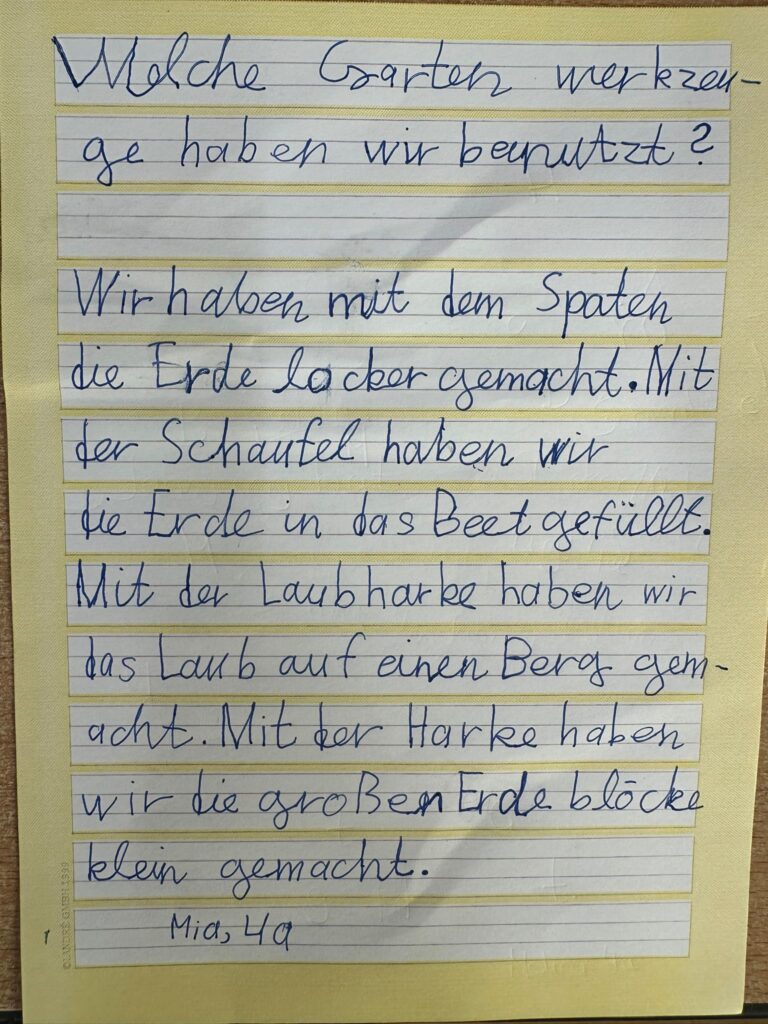 Welche Garten werkzeu-
ge haben wir benutzt?
Wir haben mit dem Spaten
die Erde locker gemacht. Mit
der Schaufel haben wir
die Erde in das Beet gefüllt.
Mit der Laubharke haben wir
das Laub auf einen Berg gem-
acht. Mit der Harke haben
wir die großen Erde blöcke
klein gemacht.
Mia, 4a